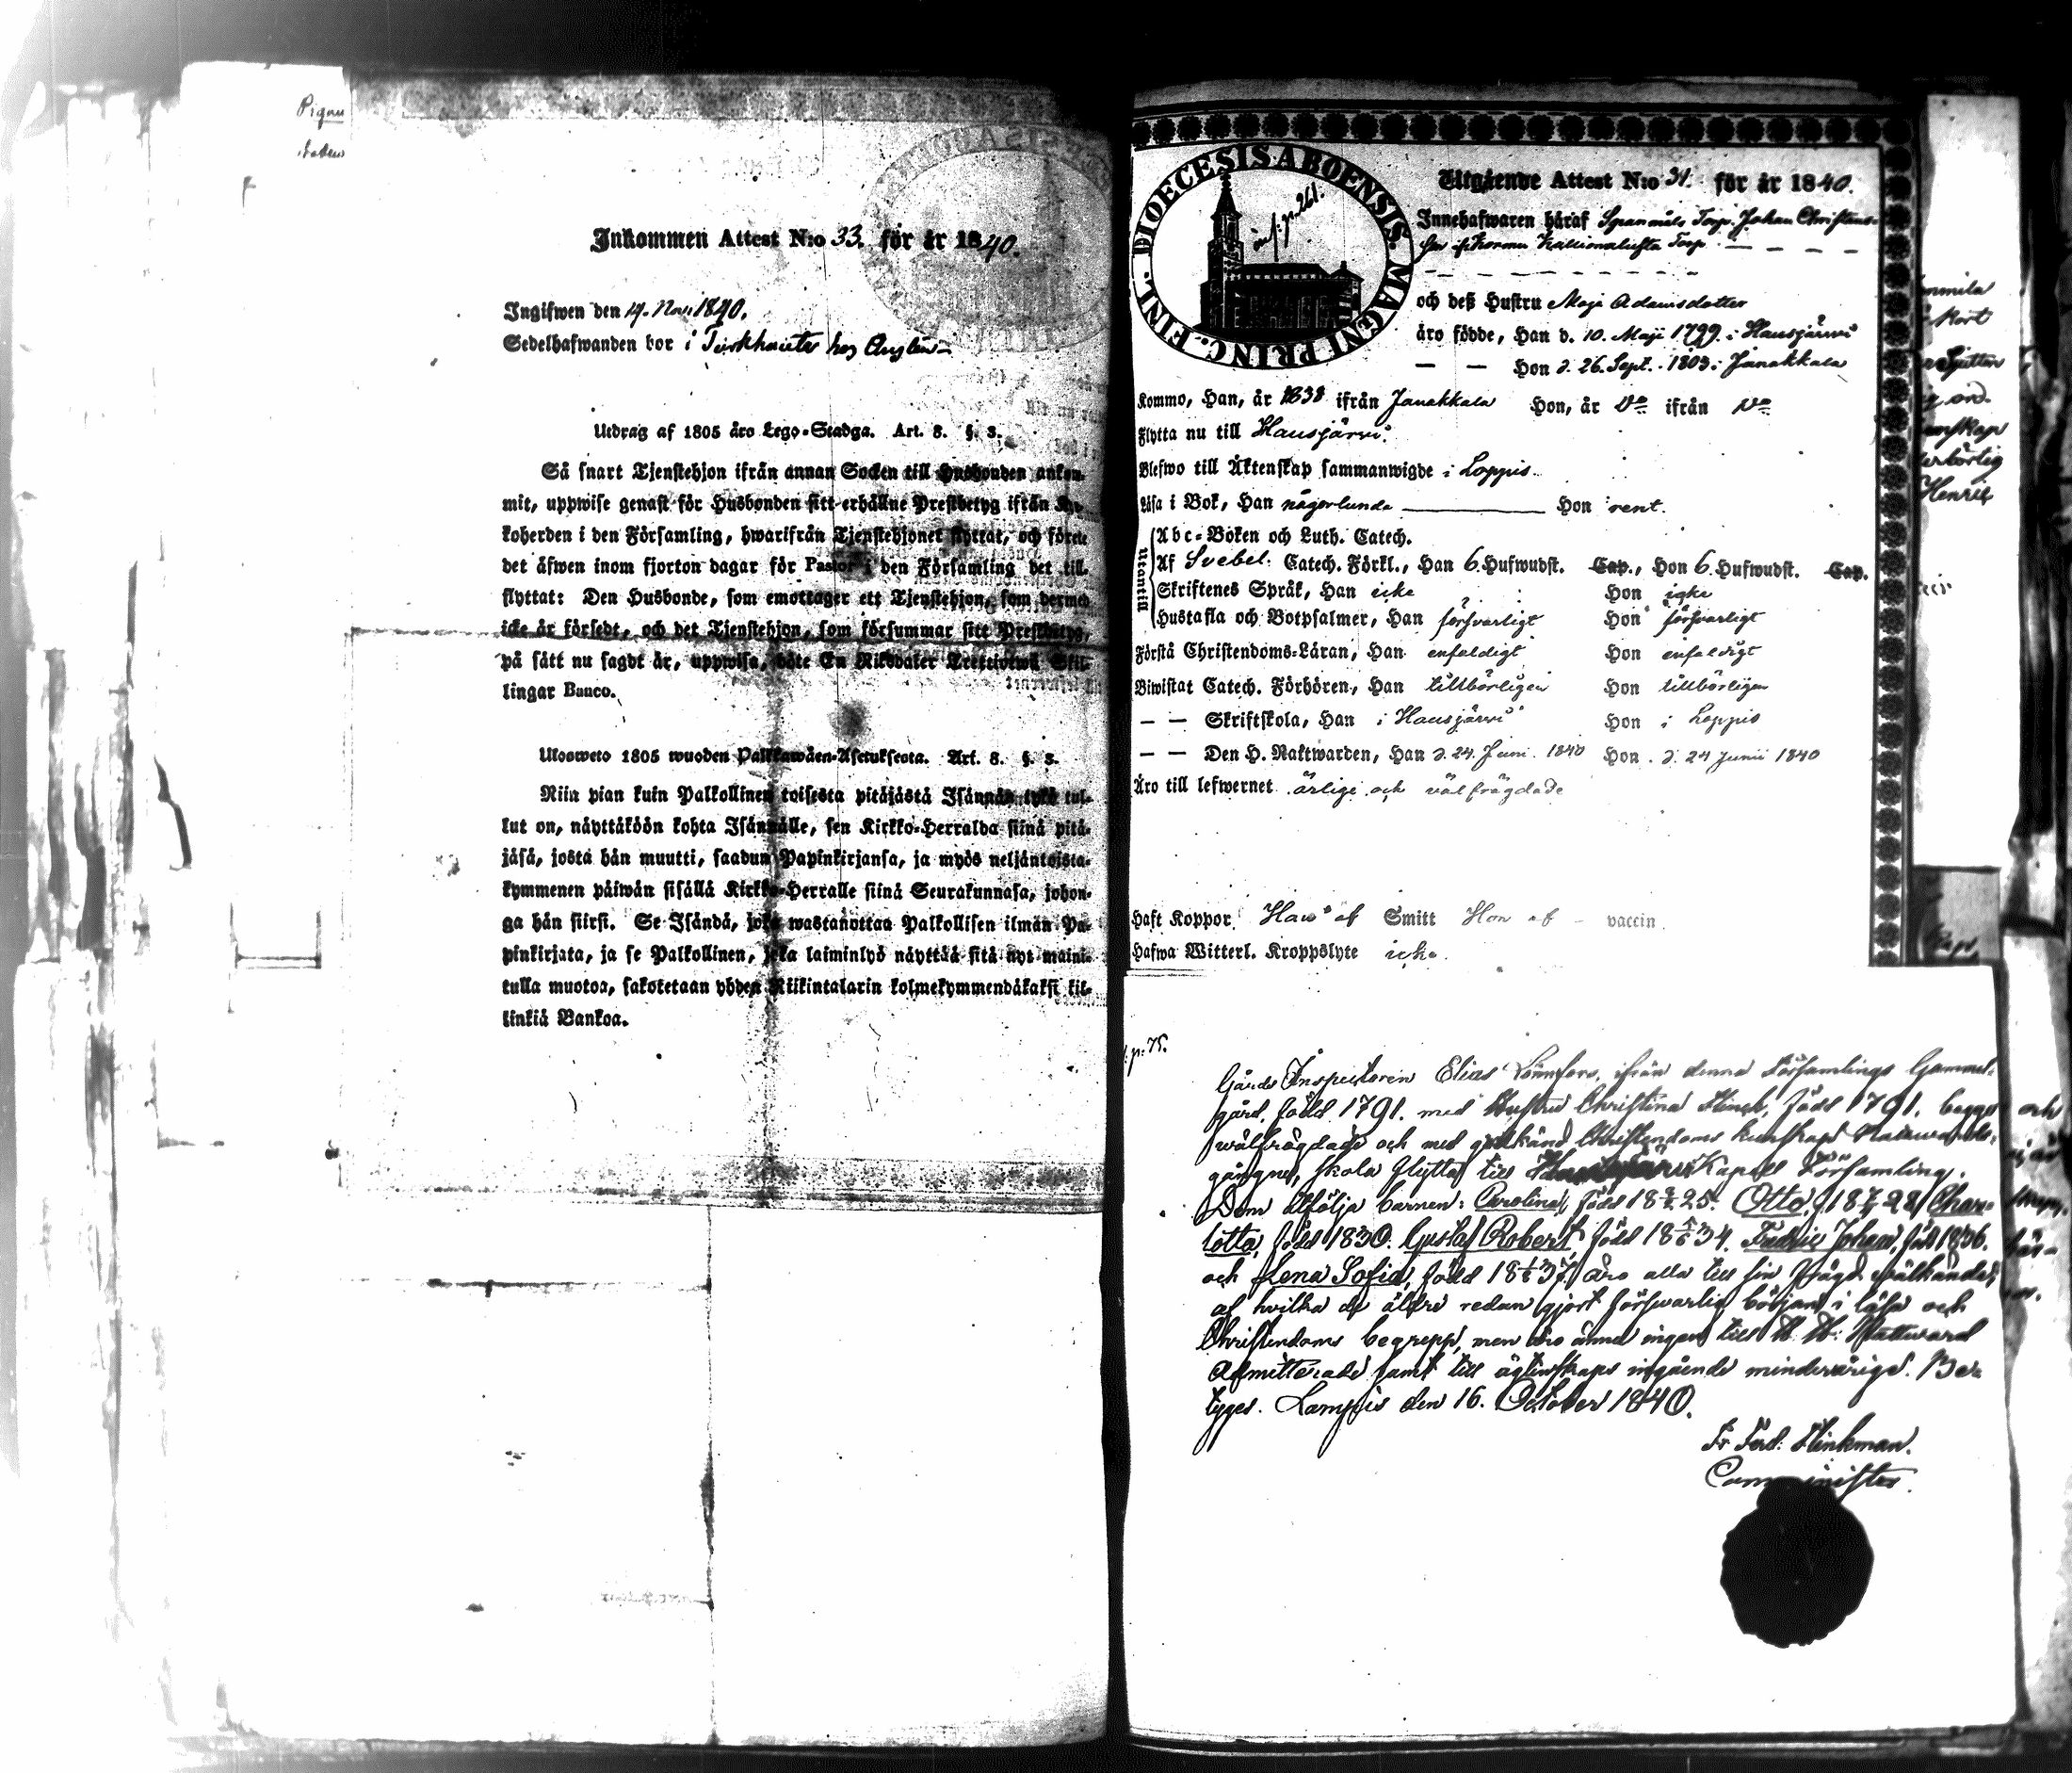 Inkommen Attest N:o 33. för år 1840.
Ingifwen den 14. Nov. 1840.
Sedelhafwanden bor i hos
Utdrag af 1805 års Lego-Stadga. Art. 8. §. 3.
Så snart Tjenstehjon ifrån annan Socken till Husbonden ankom-
mit, uppwise genast för Husbonden sitt erhållne Prestbetyg ifrån Ky-
koherden i den Församling, hwarifrån Tjenstehjonet flyttat, och förete
det äfwen inom fjorton dagar för Pastor i den Församling det till-
flyttat: Den Husbonde, som emottager ett Tjenstehjon, som dermed
icke är försedt, och det Tjenstehjon, som försummar sitt Prestbetyg,
på sätt nu sagdt är, uppwisa, böte En Riksdaler Trettiotwå Skil-
lingar Banco.
Ulosweto 1805 wuoden Palkkawäen-Asetuksesta. Art. 8. §. 3.
Niin pian kuin Palkollinen toisesta pitäjästä Isännän tykö tul-
lut on, näyttäköön kohta Isännälle, sen Kirkko-Herralda siinä pitä-
jäsä, josta hän muutti, saadun Papinkirjansa, ja myös neljäntoista-
kymmenen päiwän sisällä Kirkko-Herralle siinä Seurakunnasa, johon-
ga hän siirsi. Se Isändä, joka wastanottaa Palkollisen ilmän Pa-
pinkirjata, ja se Palkollinen, joka laiminlyö näyttää sitä nyt maini-
tulla muotoa, sakotetaan yhden Riikintalarin kolmekymmendäkaksi kil-
linkiä Bankoa.
DIOECESIS ABOENSIS. MAGNI PRINC. FINL.
inf. p. 261.
Utgående Attest N:o 31. för år 1840.
Innehafwaren häraf Torp. Johan Christians-
Torp
och deß Hustru Maja Adamsdotter
äro födde, Han d. 10. Maji 1799. i Hausjärwi
— — Hon d. 26. Sept. 1803 i Janakkala
Kommo, Han, år 1838 ifrån Janakkala Hon, år Do ifrån Do
Flytta nu till Hausjärwi.
Blefwo till Äktenskap sammanwigde i Loppis.
Läsa i Bok, Han någorlunda Hon rent.
Utantill
Abc-Boken och Luth. Catech.
Af Svebel. Catech. Förkl., Han 6 Hufwudst. Cap., Hon 6. Hufwudst. Cap.
Skriftenes Språk, Han icke Hon icke
Hustafla och Botpsalmer, Han försvarligt Hon försvarligt
Förstå Christendoms-Läran, Han enfaldigt Hon enfaldigt
Biwistat Catech. Förhören, Han tillbörligen Hon tillbörligen
— — Skriftskola, Han i Hausjärwi Hon i Loppis
— — Den H. Nattwarden, Han d. 24. Juni 1840 Hon d. 24 Junii 1840
Äro till lefwernet ärlige och välfrägdade
Haft Koppor Han af Smitt Hon af vaccin
Hafwa Witterl. Kroppslyte icke
p. 75.
Gårds Inspectoren Elias Lönnfors, ifrån denna Församlings Gammel-
gård, född 1791. med Hustru Christina Flinck, född 1791. begge
wälfrägdade och med godkänd Christendoms kunskap Nattwards-
gångne, skola flytta till Kapell Församling.
Dem åtfölja barnen: Carolina, född 25. Otto, 28, Char-
lotta, född 1830. Gustaf Robert, född 34. Fredric Johan, född 1836.
och Lena Sofia, född 37. äro alla till sin frägd wälkände;
af hvilka de äldre redan gjort försvarlig början i läsa och
Christendoms begrepp, men äro ännu ingen till H. H. Nattward
Admitterade samt till äqtenskaps ingående minderårige. Be-
tyges. Lampis den 16. October 1840.
Fr Ferd: Flinkman.